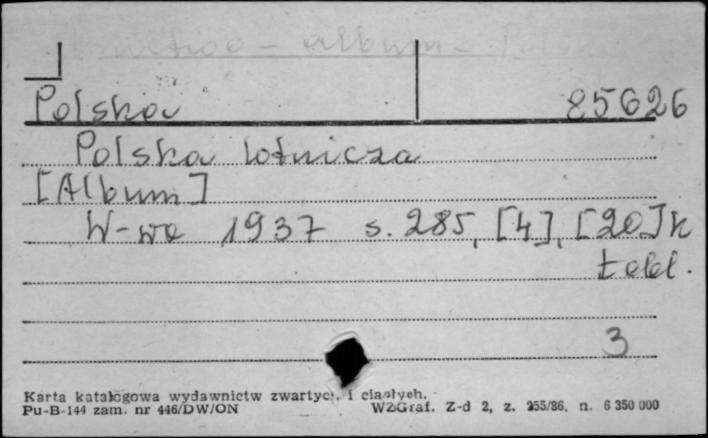 lotnictwo - album - Polska
Polska 85626
Polska lotnicza
[Album]
W-wa 1937 s. 285, [4], [20] k
tabl.
3
Karta katalogowa wydawnictw zwartych i ciągłych.
Pu-B-144 zam. nr 446/DW/ON WZGraf. Z-d 2, z. 955/86, n. 6 350 000